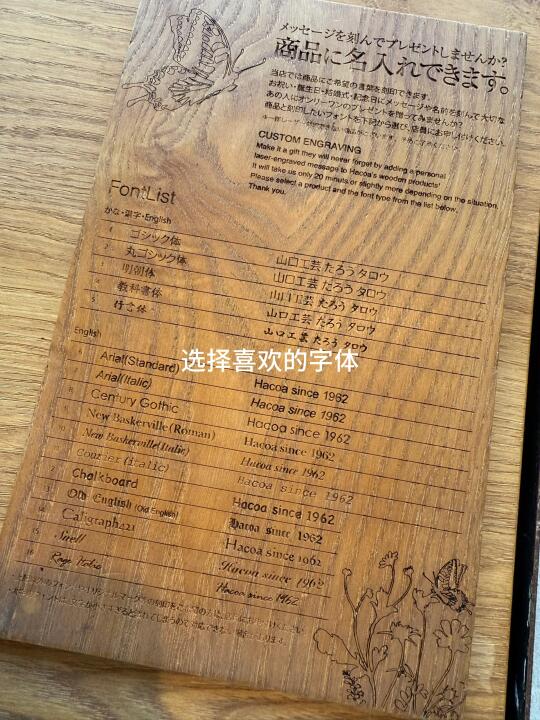 メッセージを刻んでプレゼントしませんか?
商品に名入れできます。
当店では商品にご希望の言葉を刻印できます。
お祝い・誕生日・結婚式・記念日にメッセージや名前を刻んで大切な
あの人にオンリーワンのプレゼントを贈ってみませんか?
商品と刻印したいフォントを下記から選び、店員にお申し付けください。
CUSTOM ENGRAVING
Make it a gift they will never forget by adding a personal
laser-engraved message to Hacoa's wooden products!
It will take us only 20 minuts,or slightly more depending on the situation.
Please select a product and the font type from the list below.
Thank you.
FontList
かな・漢字・English
1 ゴシック体 山口工芸 たろう タロウ
2 丸ゴシック体 山口工芸 たろう タロウ
3 明朝体 山口工芸 たろう タロウ
4 教科書体 山口工芸 たろう タロウ
5 行書体 山口工芸 たろう タロウ
选择喜欢的字体
English
Arial(Standard) Hacoa since 1962
Arial(Italic) Hacoa since 1962
Century Gothic Hacoa since 1962
New Baskerville(Roman) Hacoa since 1962
New Baskerville(Italic) Hacoa since 1962
Courier(italic) Hacoa since 1962
Chalkboard Hacoa since 1962
Old English (Old English) Hacoa since 1962
Caligraph421 Hacoa since 1962
Snell Hacoa since 1962
Rage Italic Hacoa since 1962